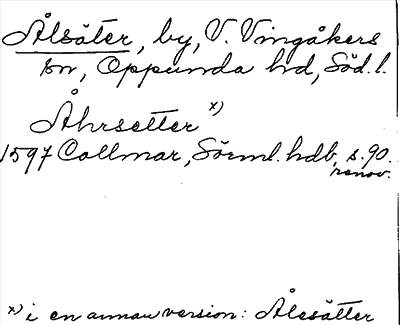 Ålsäter, by, V. Vingåkers
sn, Oppunda hd, Söd. l.
Åhrsetter x)
1597 Collmar, Sörml. hdb, s. 90.
renov.
x) i en annan version: Ålesätter